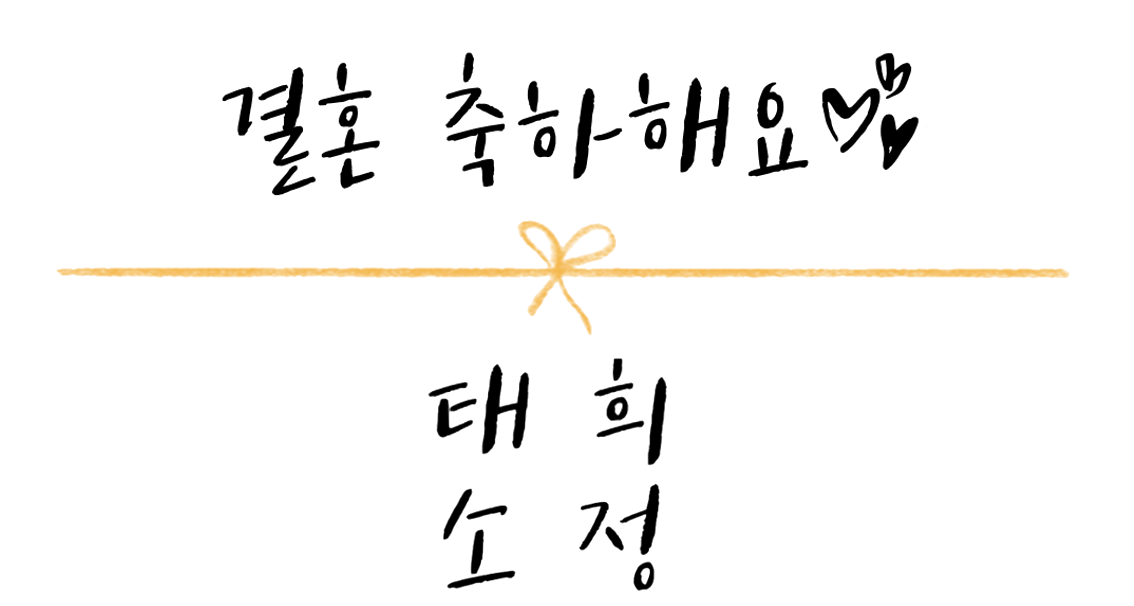 결혼 축하해요♡
태 희
소 정